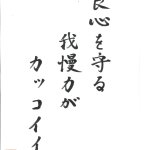 良心を守る
我慢力が
カッコイイ